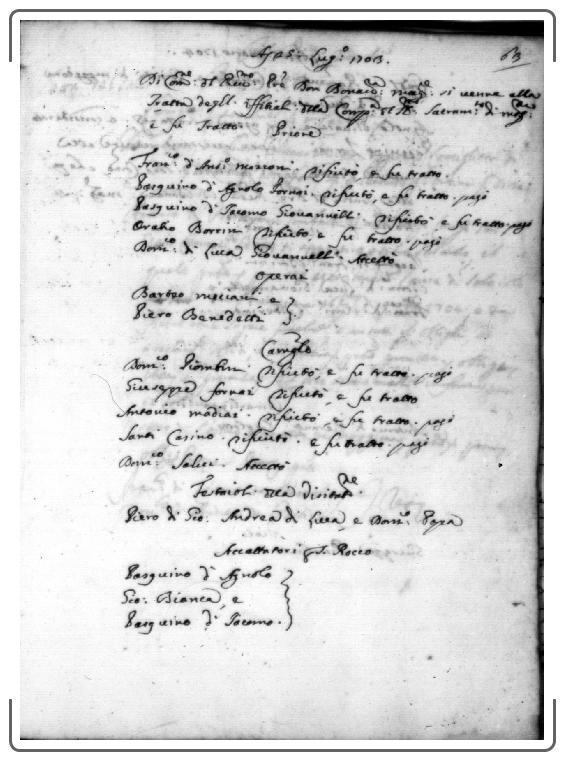 A dì 5. Lug.º 1703.
63
Di Com.ne del Rev.do Prè Don Bonav.ra si venne alla
Tratta degl. Uffitial. della Comp.a del SS. Sacram.to di
e fu Tratto Priore
Fran.co d' Ant.º Marconi. rifiutò, e fu tratto
Pasquino d' Agnolo Fornai. rifiutò, e fu tratto. pagò
Pasquino d' Jacomo Giovannell. rifiutò e fu tratto. pagò
Oratio Borrini rifiutò e fu tratto. pagò
Dom.co di Luca Giovannell. Accettò
Operai
Barteo e
Piero Benedetti
Camgło
Dom.co Piombin. rifiutò, e fu tratto. pagò
Giuseppe Fornai rifiutò, e fu tratto
Antonio Madiai. rifiutò e fu tratto. pagò
Santi Casino. rifiutò. e fu tratto. pagò
Dom.co Salvi. Accettò
Festaiol. della Visitat.ne
Piero di Gio. Andrea di Luca, e Dom.co Papa
Accattatori p S. Rocco
Pasquino d' Agnolo
Gio: Bianca, e
Pasquino d' Jacomo.